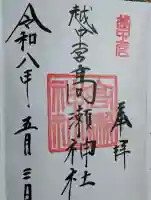 奉拝
越中一宮高瀬神社
令和八年五月三日